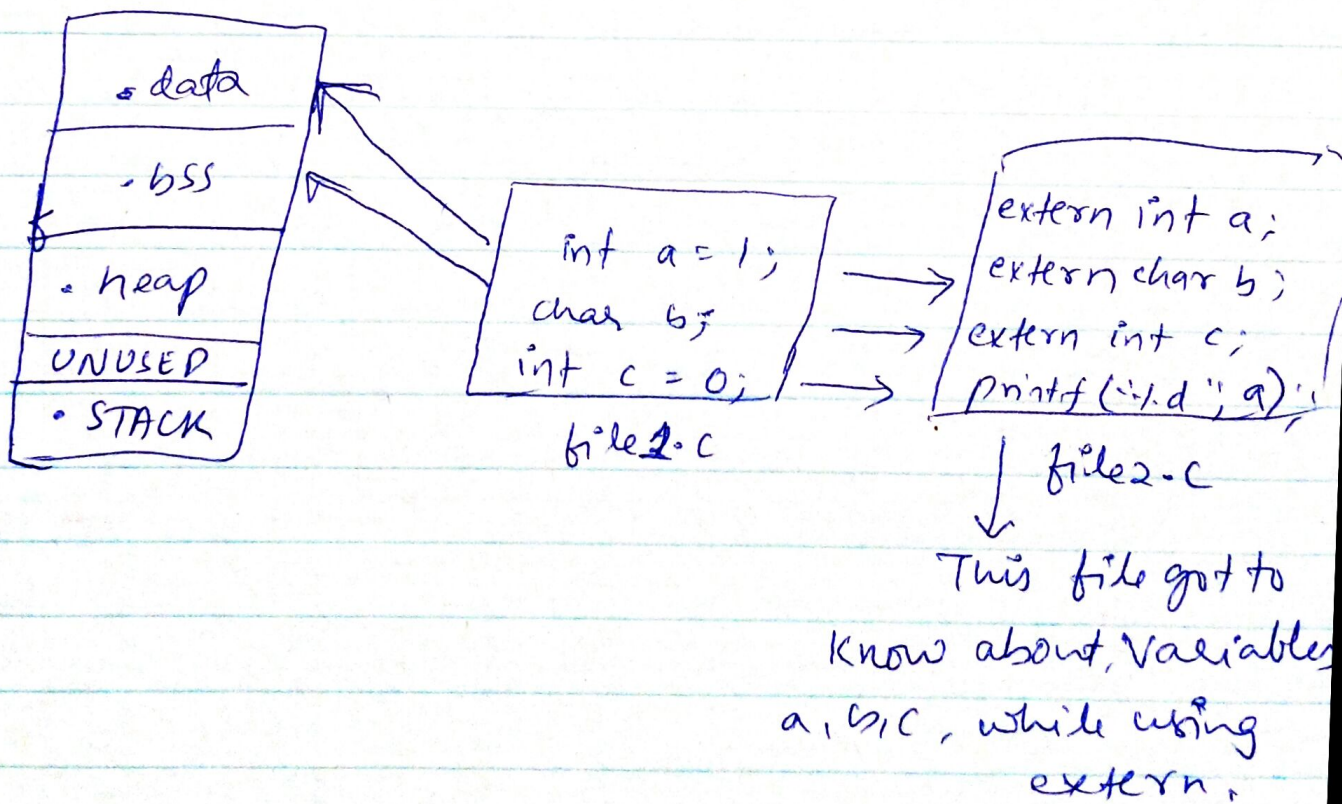 .data
.bss
.heap
UNUSED
• STACK
int a = 1;
char b;
int c = 0;
file1.c
extern int a;
extern char b;
extern int c;
printf("%d", a);
file2.c
This file got to
know about, Variables
a, b, c, while using
extern.